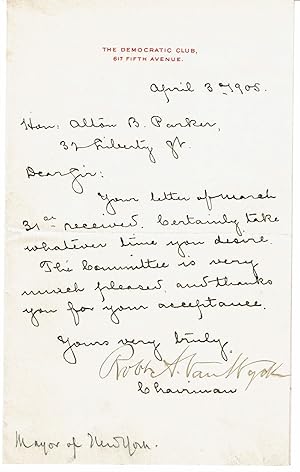 THE DEMOCRATIC CLUB,
617 FIFTH AVENUE.
April 3rd 1905.
Hon: Alton B. Parker,
32 Liberty St.
Dear Sir:
Your letter of March
31st received. Certainly take
whatever time you desire.
The Committee is very
much pleased and thanks
you for your acceptance.
Yours very truly,
Robt. A. Van Wyck
Chairman
Mayor of New York.